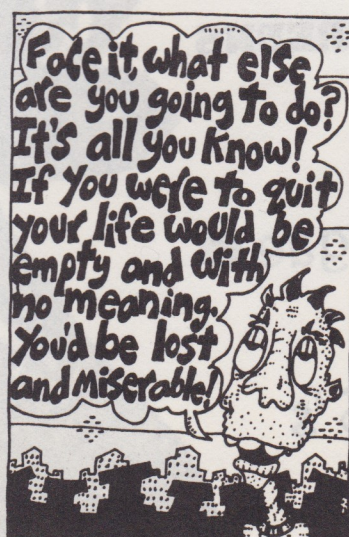 Face it, what else
are you going to do?
It's all you know!
If you were to quit
your life would be
empty and with
no meaning.
You'd be lost
and miserable!